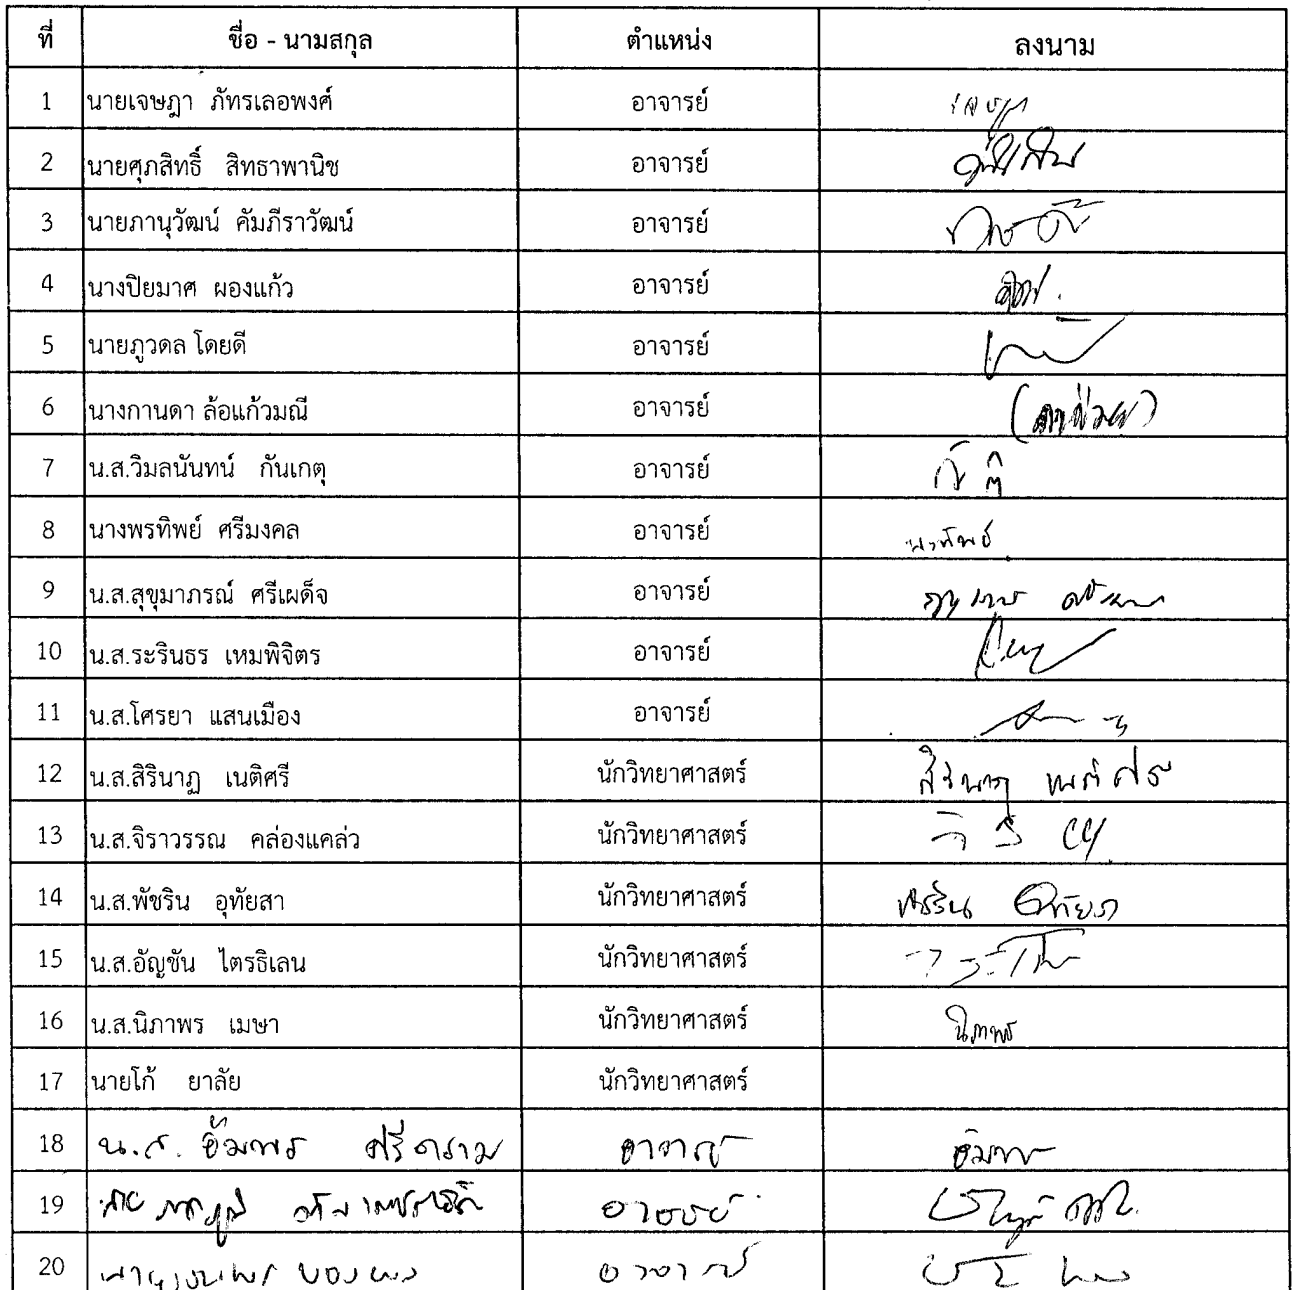 ที่ ชื่อ - นามสกุล ตำแหน่ง ลงนาม
1 นายเจษฎา ภัทรเลอพงศ์ อาจารย์
2 นายศุภสิทธิ์ สิทธาพานิช อาจารย์
3 นายภานุวัฒน์ คัมภีราวัฒน์ อาจารย์
4 นางปิยมาศ ผองแก้ว อาจารย์
5 นายภูวดล โดยดี อาจารย์
6 นางกานดา ล้อแก้วมณี อาจารย์
7 น.ส.วิมลนันทน์ กันเกตุ อาจารย์
8 นางพรทิพย์ ศรีมงคล อาจารย์ พรทิพย์
9 น.ส.สุขุมาภรณ์ ศรีเผด็จ อาจารย์
10 น.ส.ระรินธร เหมพิจิตร อาจารย์
11 น.ส.โศรยา แสนเมือง อาจารย์
12 น.ส.สิรินาฏ เนติศรี นักวิทยาศาสตร์ สิรินาฏ เนติศรี
13 น.ส.จิราวรรณ คล่องแคล่ว นักวิทยาศาสตร์
14 น.ส.พัชริน อุทัยสา นักวิทยาศาสตร์ พัชริน อุทัยสา
15 น.ส.อัญชัน ไตรธิเลน นักวิทยาศาสตร์
16 น.ส.นิภาพร เมษา นักวิทยาศาสตร์ นิภาพร
17 นายโก้ ยาลัย นักวิทยาศาสตร์
18 น.ส. อัมพร ศรีคราม อาจารย์ อัมพร
19 นาย อาจารย์
20 อาจารย์